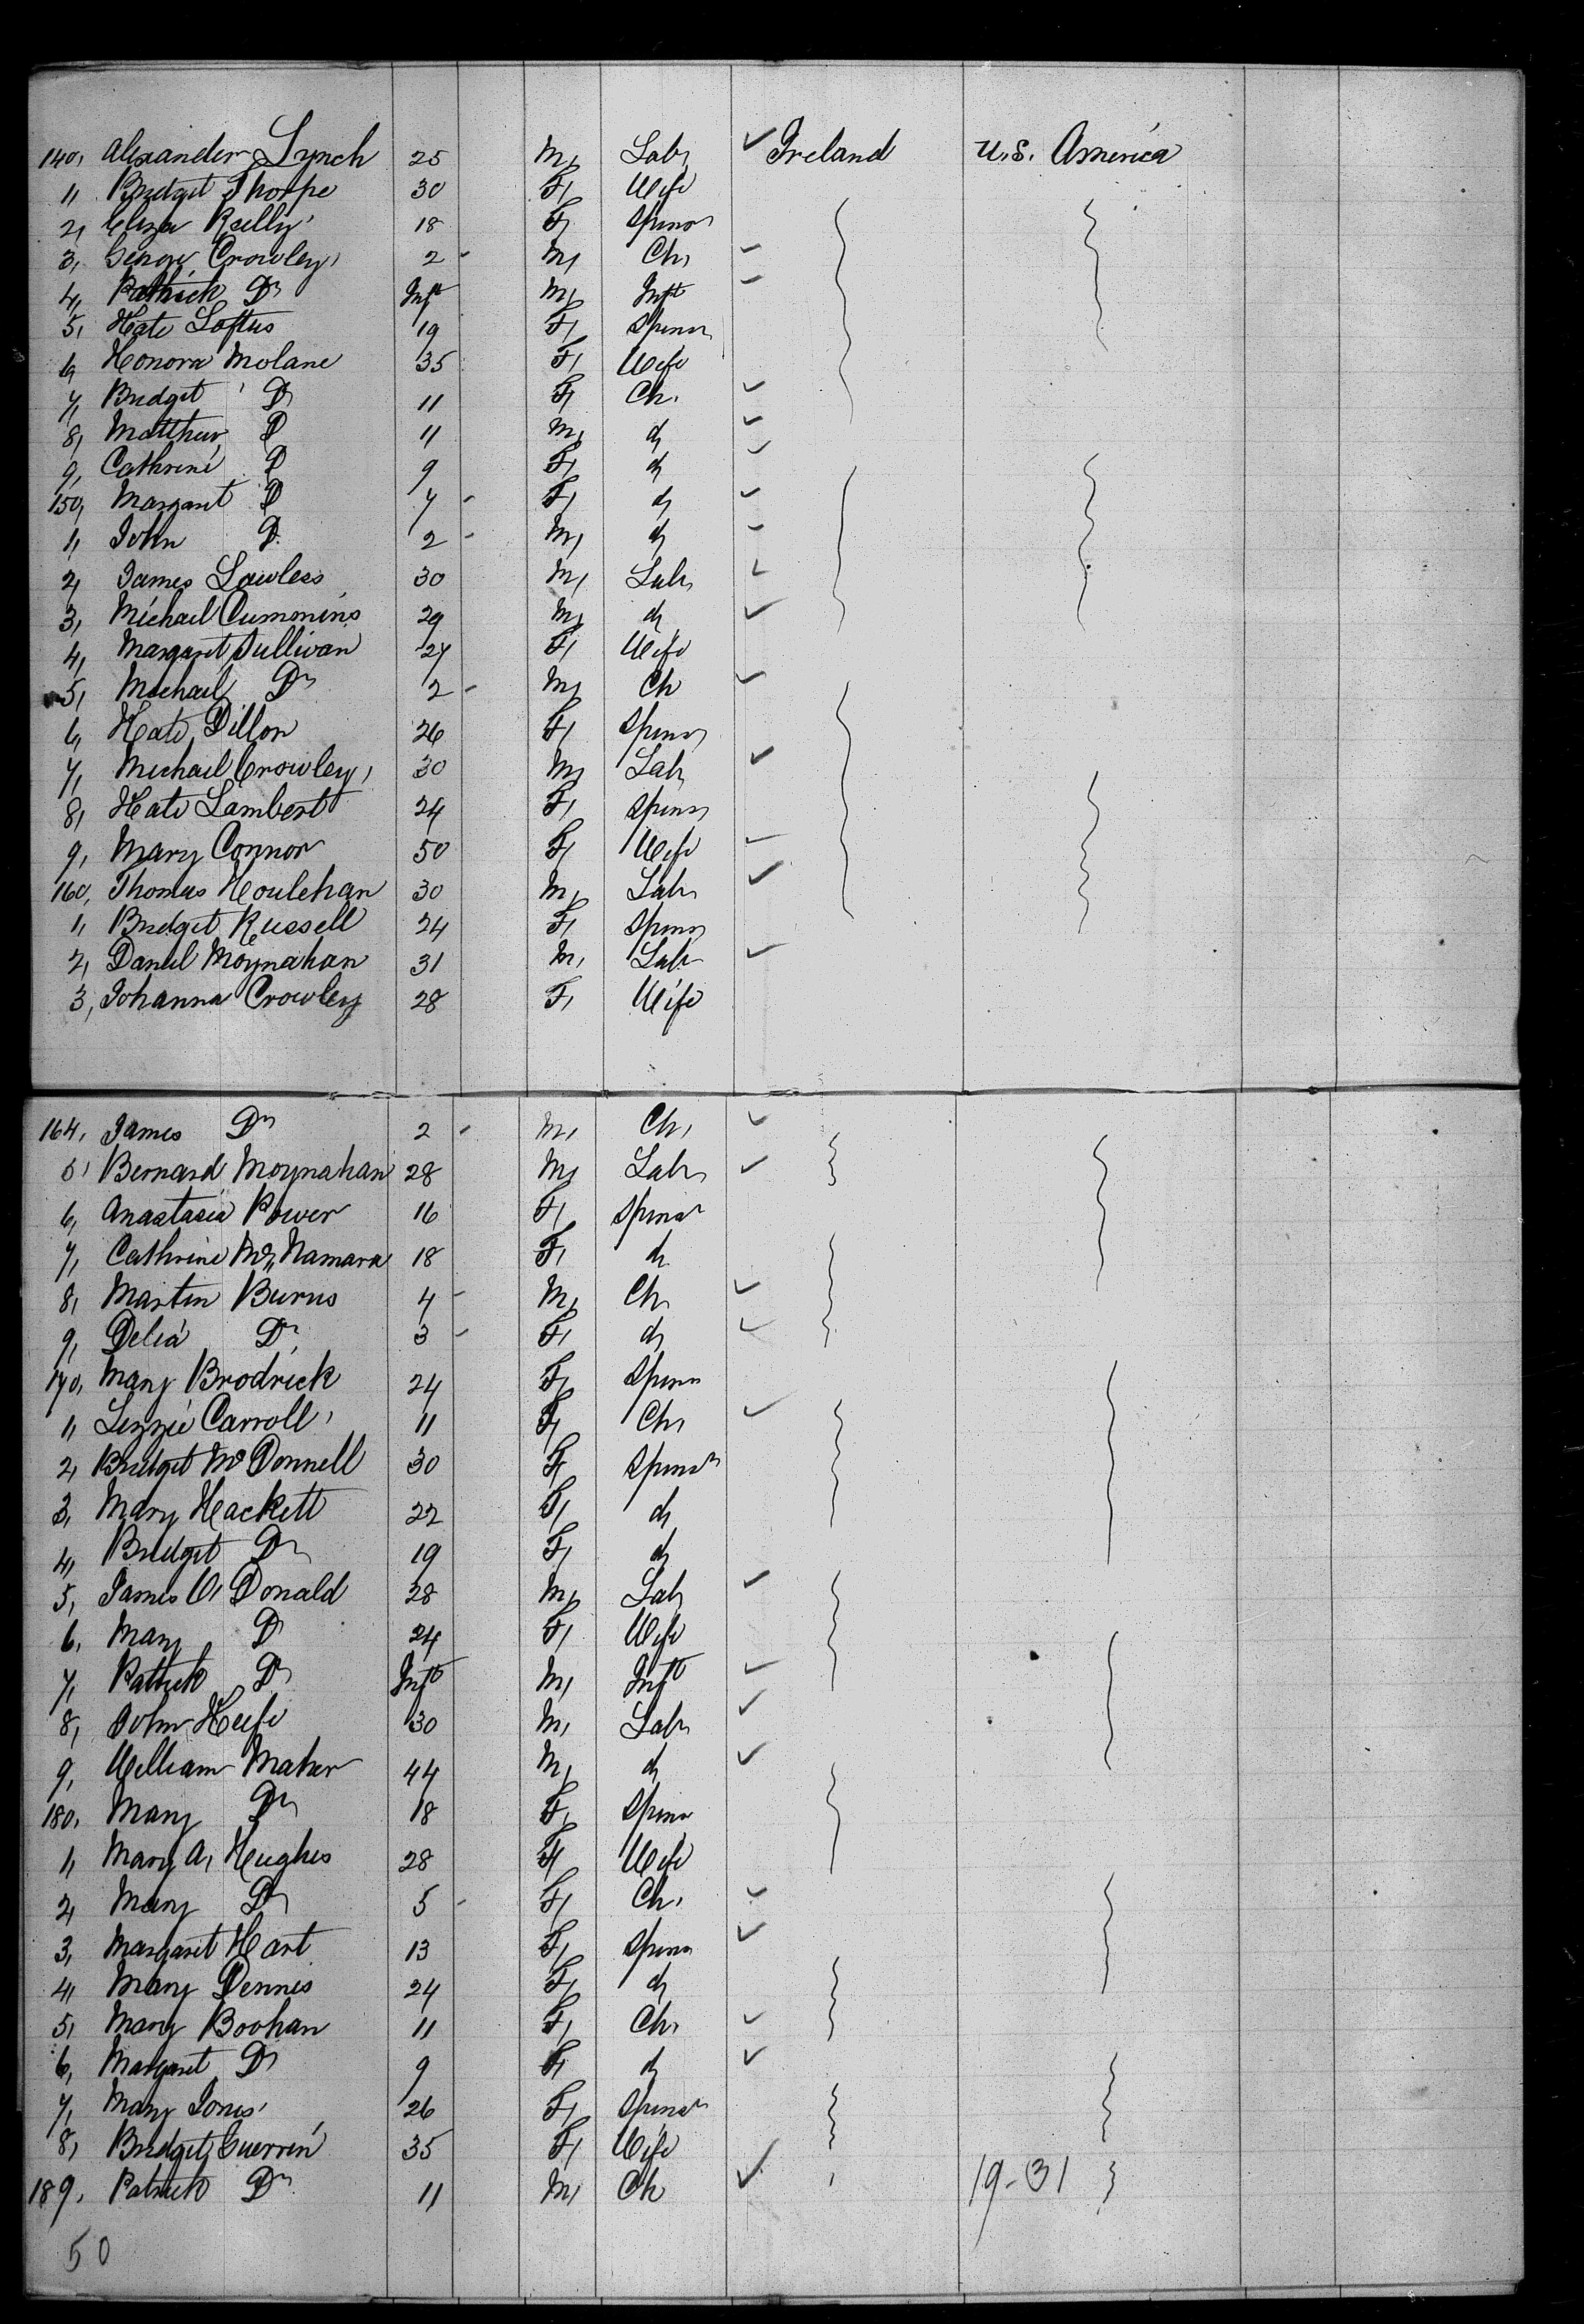 140, Alexander Lynch 25 M, Lab, ✓ Ireland U.S. America
1, Bridget Thorpe 30 F, Wife
2, Eliza Reilly 18 F, Spinsr
3, George Crowley, 2 - M, Ch, ✓
4, Patrick Do Inft M, Inft ✓
5, Kate Loftus 19 F, Spinsr
6, Honora Molane 35 F, Wife
7, Bridget Do 11 F, Ch, ✓
8, Matthew D 11 M, d, ✓
9, Cathrine D 9 F, d, ✓
150, Margaret D 7 - F, d, ✓
1, John D 2 - M, d, ✓
2, James Lawless 30 M, Lab, ✓
3, Michael Cummins 29 M, d, ✓
4, Margaret Sullivan 27 F, Wife
5, Michael Do 2 - M, Ch ✓
6, Kate Dillon 26 F, Spinsr
7, Michael Crowley, 30 M, Lab, ✓
8, Kate Lambert 24 F, Spinsr
9, Mary Connor 50 F, Wife ✓
160, Thomas Houlehan 30 M, Lab, ✓
1, Bridget Russell 24 F, Spinsr
2, Daniel Moynahan 31 M, Lab ✓
3, Johanna Crowley 28 F, Wife
164, James Do 2 - M, Ch, ✓
5, Bernard Moynahan 28 M, Lab, ✓
6, Anastasia Power 16 F, Spinsr
7, Cathrine Mc Namara 18 F, d,
8, Martin Burns 4 - M, Ch, ✓
9, Delia Do 3 - F, d, ✓
170, Mary Brodrick 24 F, Spinsr
1, Lizzie Carroll, 11 F, Ch, ✓
2, Bridget Mc Donnell 30 F, Spinsr
3, Mary Hackett 22 F, d,
4, Bridget Do 19 F, d,
5, James O, Donald 28 M, Lab, ✓
6, Mary D 24 F, Wife
7, Patrick Do Inft M, Inft ✓
8, John 30 M, Lab, ✓
9, William Maher 44 M, d, ✓
180, Mary Do 18 F, Spinsr
1, Mary A, Hughes 28 F, Wife
2, Mary Do 5 - F, Ch, ✓
3, Margaret Hart 13 F, Spinsr ✓
4, Mary Dennis 24 F, d,
5, Mary Boohan 11 F, Ch, ✓
6, Margaret Do 9 F, d, ✓
7, Mary Jones 26 F, Spinsr
8, Bridget Guerrin 35 F, Wife
189, Patrick Do 11 M, Ch ✓ 19-31
50